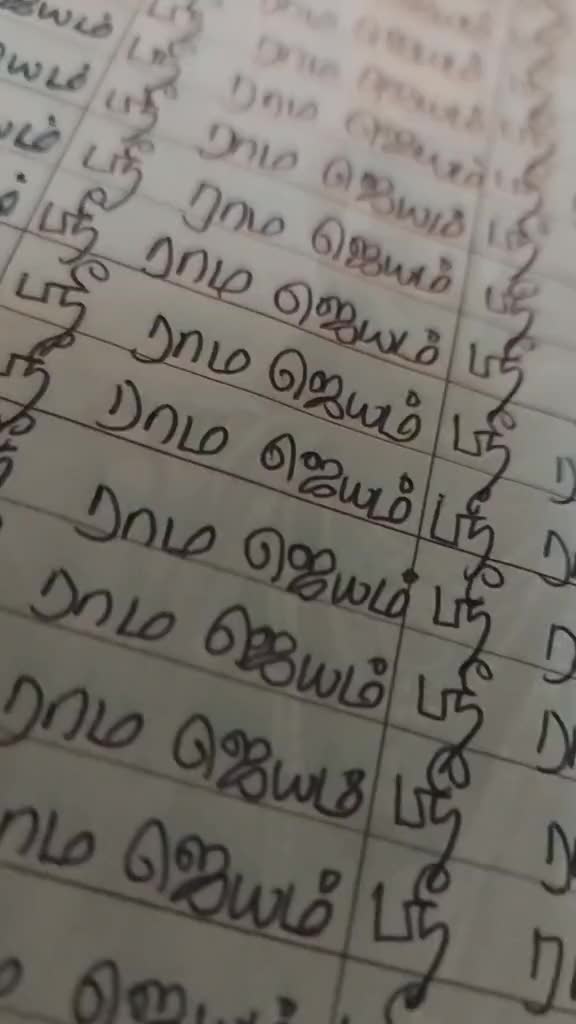 ஸ்ரீ ராம ஜெயம் ஸ்ரீ
ஜெயம் ஸ்ரீ ராம ஜெயம் ஸ்ரீ
ஸ்ரீ ராம ஜெயம் ஸ்ரீ
ஸ்ரீ ராம ஜெயம் ஸ்ரீ
ஸ்ரீ ராம ஜெயம் ஸ்ரீ
ஸ்ரீ ராம ஜெயம் ஸ்ரீ
ஸ்ரீ ராம ஜெயம் ஸ்ரீ
ஸ்ரீ ராம ஜெயம் ஸ்ரீ
ராம ஜெயம் ஸ்ரீ
ராம ஜெயம் ஸ்ரீ
ராம ஜெயம் ஸ்ரீ
ராம ஜெயம் ஸ்ரீ
ஜெயம்